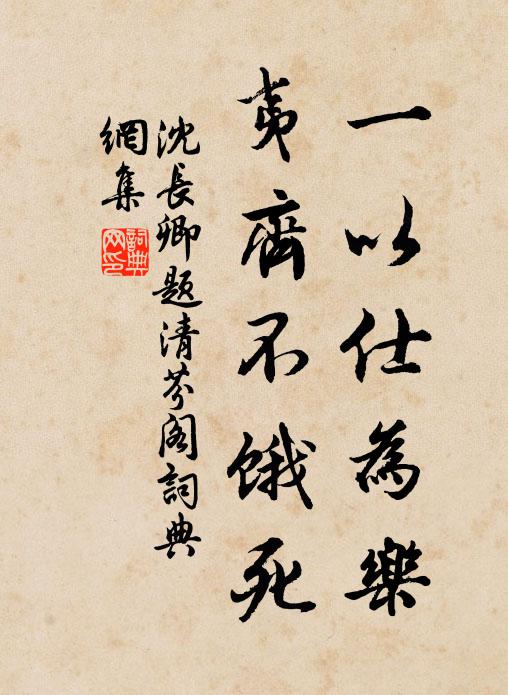 一以仕為樂
夷齊不餓死
沈長卿題清芬阁詞典
網集
詞典網印